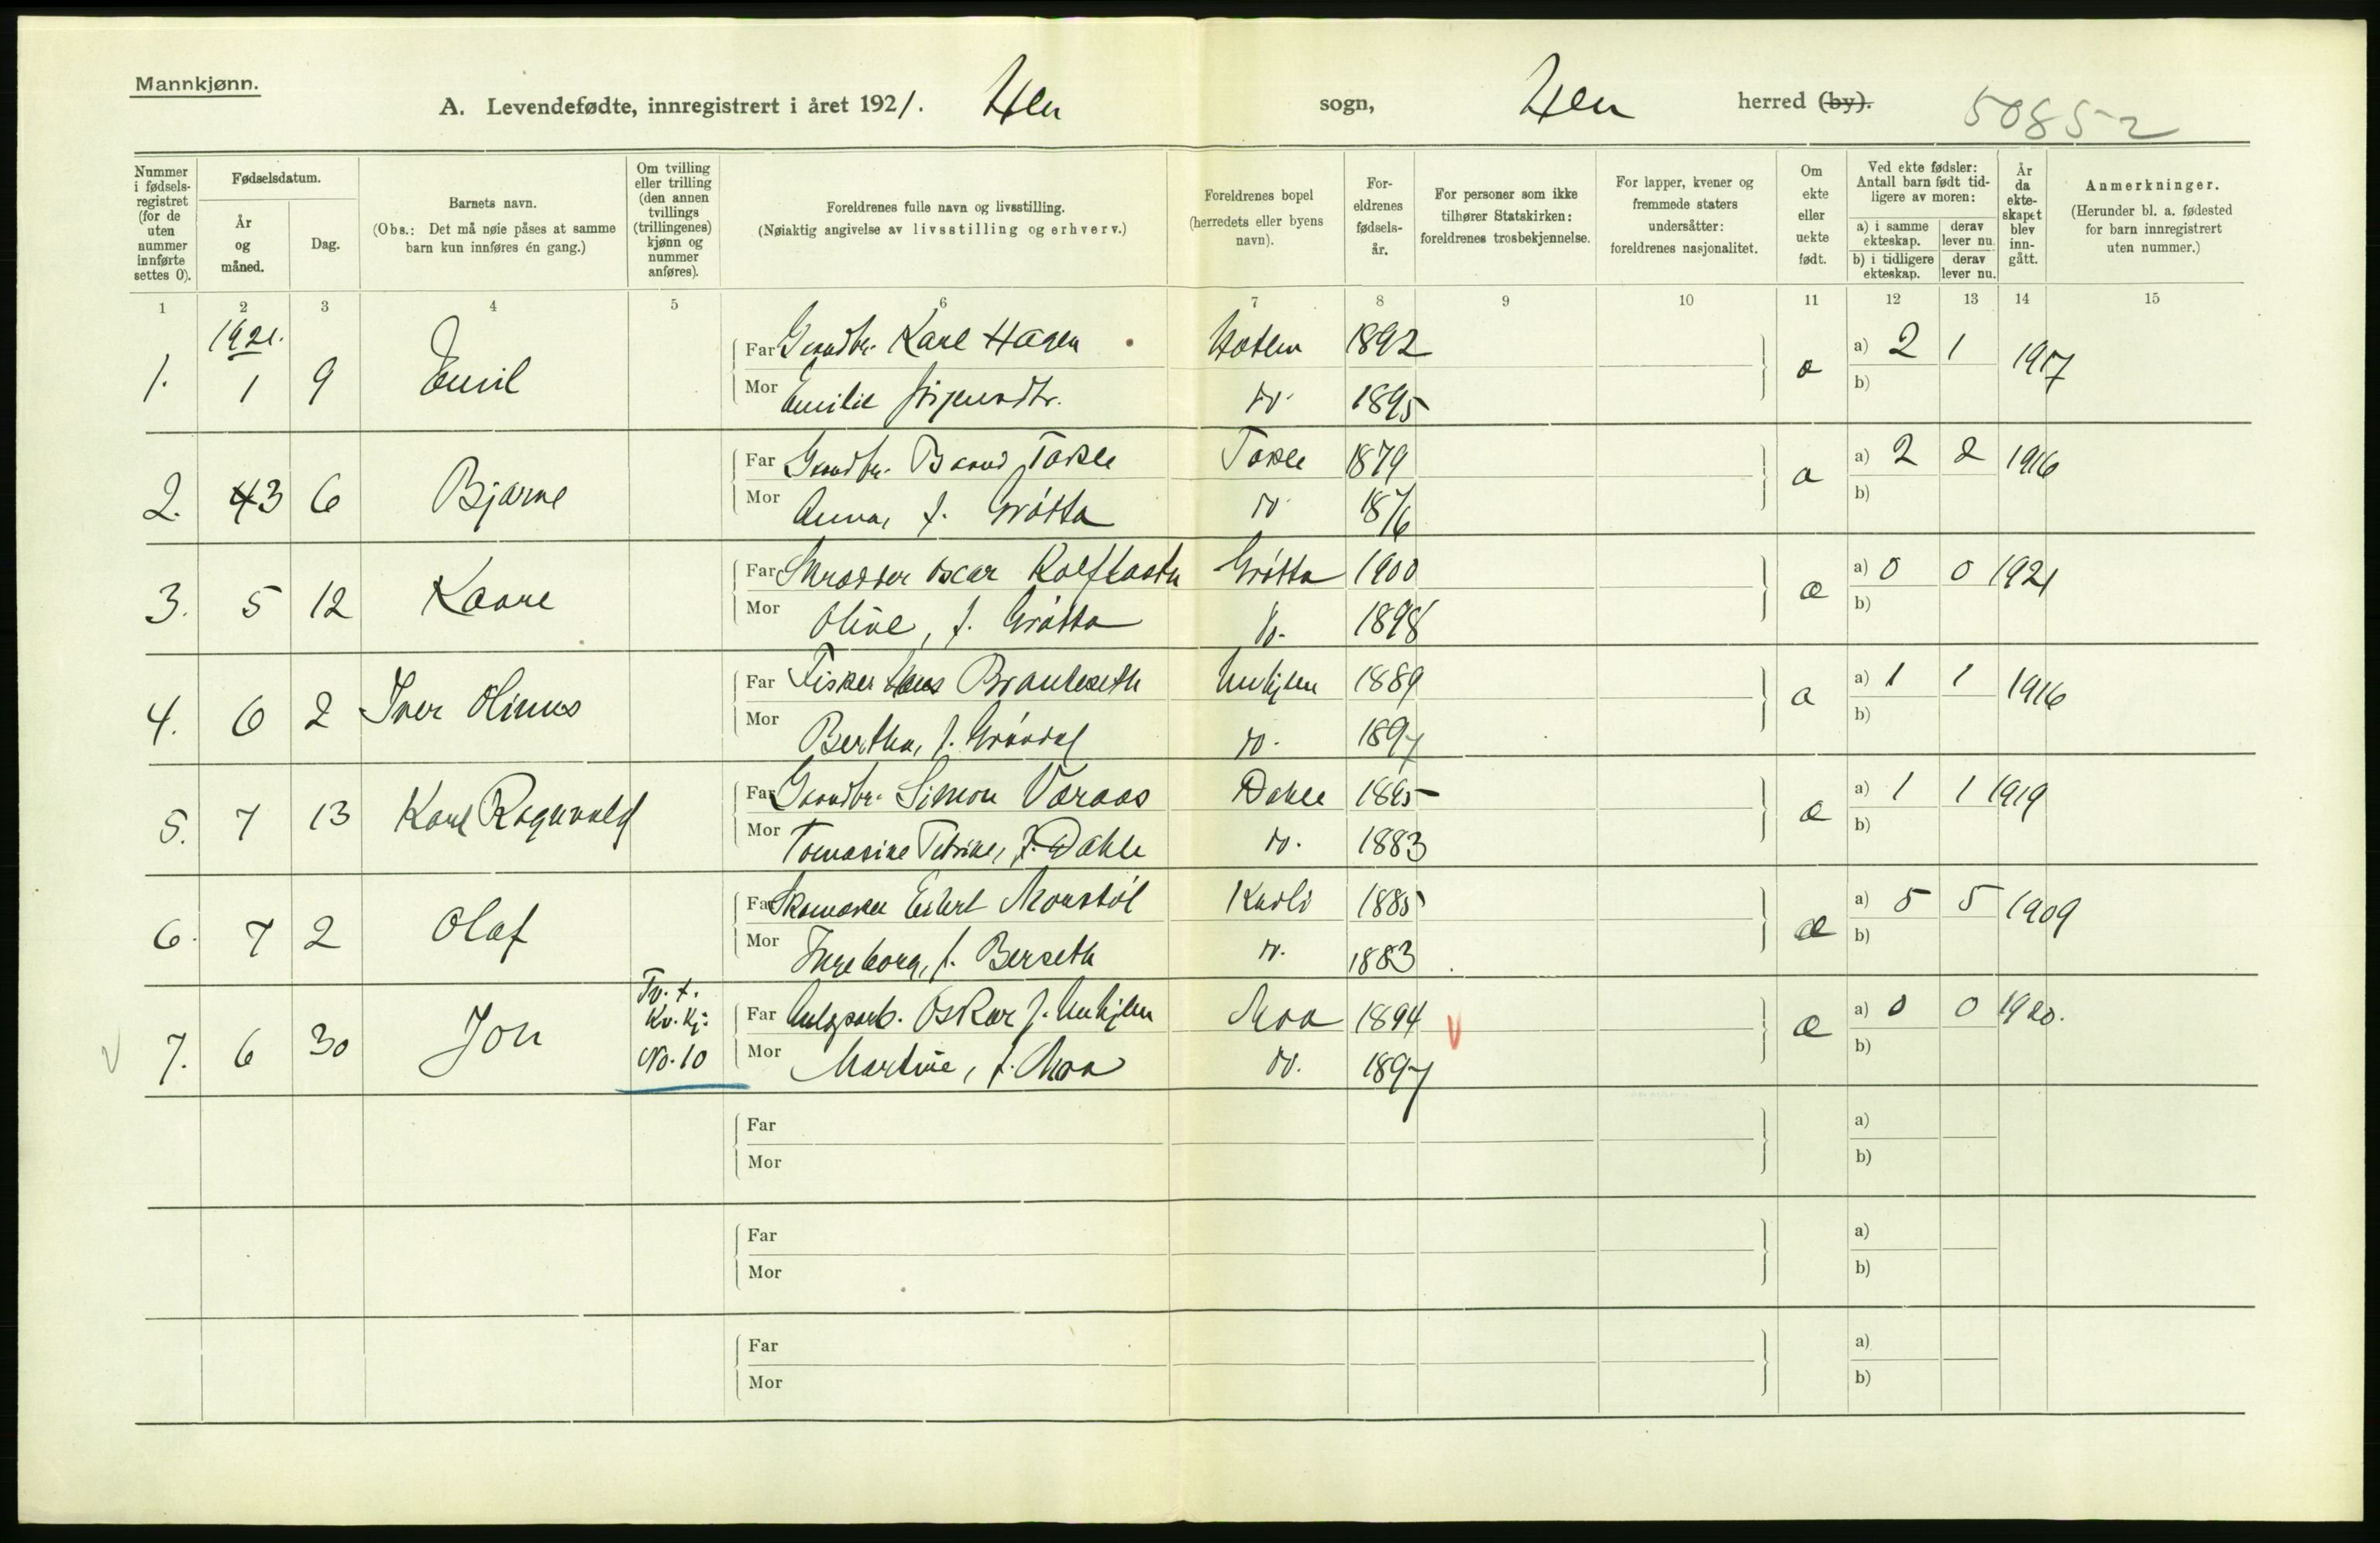 Mannkjønn.
A. Levendefødte, innregistrert i året 1921. Hen sogn, Hen herred (by). 50852
Nummer i fødsels-registret (for de uten nummer innførte settes 0).
Fødselsdatum.
År og måned.
Dag.
Barnets navn.
(Obs.: Det må nøie påses at samme barn kun innføres én gang.)
Om tvilling eller trilling (den annen tvillings (trillingenes) kjønn og nummer anføres).
Foreldrenes fulle navn og livsstilling.
(Nøiaktig angivelse av livsstilling og erhverv.)
Foreldrenes bopel (herredets eller byens navn).
For-eldrenes fødsels-år.
For personer som ikke tilhører Statskirken: foreldrenes trosbekjennelse.
For lapper, kvener og fremmede staters undersåtter: foreldrenes nasjonalitet.
Om ekte eller uekte født.
Ved ekte fødsler: Antall barn født tid-ligere av moren:
a) i samme ekteskap.
derav lever nu.
b) i tidligere ekteskap.
derav lever nu.
År da ekte-skapet blev inn-gått.
Anmerkninger.
(Herunder bl. a. fødested for barn innregistrert uten nummer.)
1 2 3 4 5 6 7 8 9 10 11 12 13 14 15
1921.
1. 1 9 Emil
Far Gaardbr. Karl Hagen 1892 a) 2 1 1917
Mor Emilie do. 1895 b)
2. 43 6 Bjarne
Far Gaardbr. Takle 1879 a) 2 2 1916
Mor Anna, f. Grøtta do. 1876 b)
3. 5 12 Kaare
Far Oscar Grøtta 1900 æ a) 0 0 1921
Mor Oline, f. Grøtta do. 1898 b)
4. 6 2 Iver Olinus
Far Fisker Hans 1889 a) 1 1 1916
Mor Bertha, f. Grøvdal do. 1897 b)
5. 7 13 Karl Ragnvald
Far Gaardbr. Simon Varaas Dahle 1895 æ a) 1 1 1919
Mor Tomasine Petrike, f. Dahle do. 1883 b)
6. 7 2 Olaf
Far Skomaker 1885 æ a) 5 5 1909
Mor Ingeborg, f. Berseth do. 1883 b)
7. 6 30 Jon
Tv. t. Kv. kj. No. 10
Far Oskar J. Moa 1894 v æ a) 0 0 1920.
v Mor Martine, f. Moa do. 1897 b)
Far a)
Mor b)
Far a)
Mor b)
Far a)
Mor b)